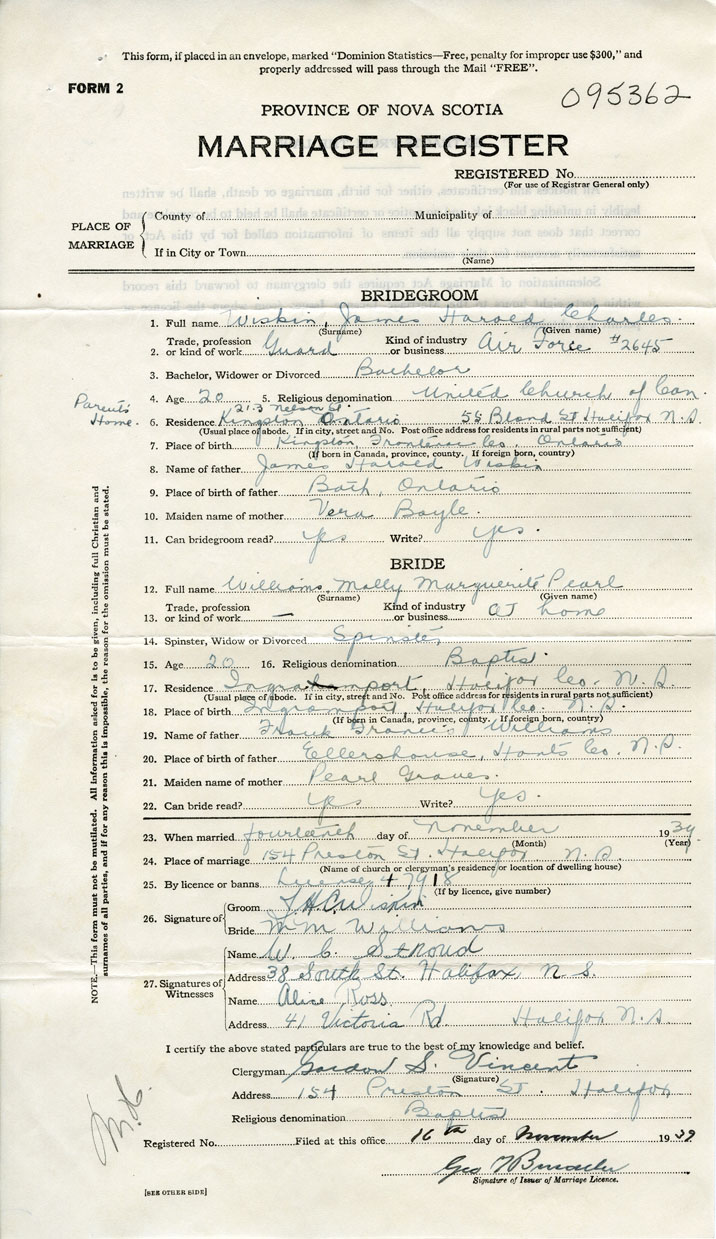 This form, if placed in an envelope, marked "Dominion Statistics—Free, penalty for improper use $300," and
properly addressed will pass through the Mail "FREE".
FORM 2
095362
PROVINCE OF NOVA SCOTIA
MARRIAGE REGISTER
REGISTERED No.
(For use of Registrar General only)
PLACE OF MARRIAGE
County of Municipality of
If in City or Town
(Name)
BRIDEGROOM
1. Full name Wiskin, James Harold Charles.
(Surname) (Given name)
2. Trade, profession or kind of work Guard Kind of industry or business Air Force #2645
3. Bachelor, Widower or Divorced Bachelor
4. Age 20 5. Religious denomination United Church of Can.
Parents Home.
213 Nelson St.
6. Residence Kingston Ontario 58 Bland St Halifax N.S.
(Usual place of abode. If in city, street and No. Post office address for residents in rural parts not sufficient)
7. Place of birth Kingston, Frontenac Co., Ontario
(If born in Canada, province, county. If foreign born, country)
8. Name of father James Harold Wiskin
9. Place of birth of father Bath, Ontario
10. Maiden name of mother Vera Boyle.
11. Can bridegroom read? Yes Write? Yes.
BRIDE
12. Full name Williams, Molly Marguerite Pearl
(Surname) (Given name)
13. Trade, profession or kind of work — Kind of industry or business at home
14. Spinster, Widow or Divorced Spinster
15. Age 20 16. Religious denomination Baptist.
17. Residence Ingramport, Halifax Co. N.S.
(Usual place of abode. If in city, street and No. Post office address for residents in rural parts not sufficient)
18. Place of birth Ingramport, Halifax Co. N.S.
(If born in Canada, province, county. If foreign born, country)
19. Name of father Frank Francis Williams
20. Place of birth of father Ellershouse, Hants Co. N.S.
21. Maiden name of mother Pearl Graves.
22. Can bride read? Yes Write? Yes.
23. When married fourteenth day of November 1939
(Month) (Year)
24. Place of marriage 154 Preston St. Halifax N.S.
(Name of church or clergyman's residence or location of dwelling house)
25. By licence or banns License 47918
(If by licence, give number)
26. Signature of
Groom J.H.C. Wiskin
Bride M M Williams
27. Signatures of Witnesses
Name W. C. Stroud
Address 38 South St. Halifax, N.S.
Name Alice Ross
Address 41 Victoria Rd Halifax N.S.
I certify the above stated particulars are true to the best of my knowledge and belief.
Clergyman Gordon S. Vincent
(Signature)
Address 154 Preston St. Halifax
Religious denomination Baptist
Registered No. Filed at this office 16th day of November 1939
Geo
Signature of Issuer of Marriage Licence.
[SEE OTHER SIDE]
NOTE.—This form must not be mutilated. All Information asked for is to be given, including full Christian and
surnames of all parties, and if for any reason this is impossible, the reason for the omission must be stated.